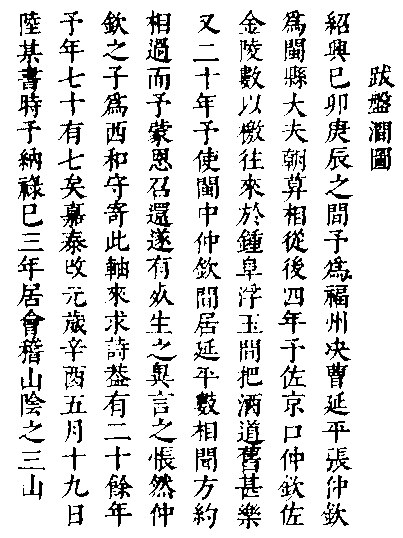 跋盤澗圖
紹興己卯庚辰之間予爲福州决曹延平張仲欽
爲閩縣大夫朝莫相從後四年予佐京口仲欽佐
金陵數以檄往來於鍾阜浮玉間把酒道舊甚樂
又二十年予使閩中仲欽閒居延平數相聞方約
相過而予蒙恩召還遂有死生之異言之悵然仲
欽之子爲西和守寄此軸來求詩葢有二十餘年
予年七十有七矣嘉泰改元歲辛酉五月十九日
陸某書時予納祿已三年居會稽山陰之三山